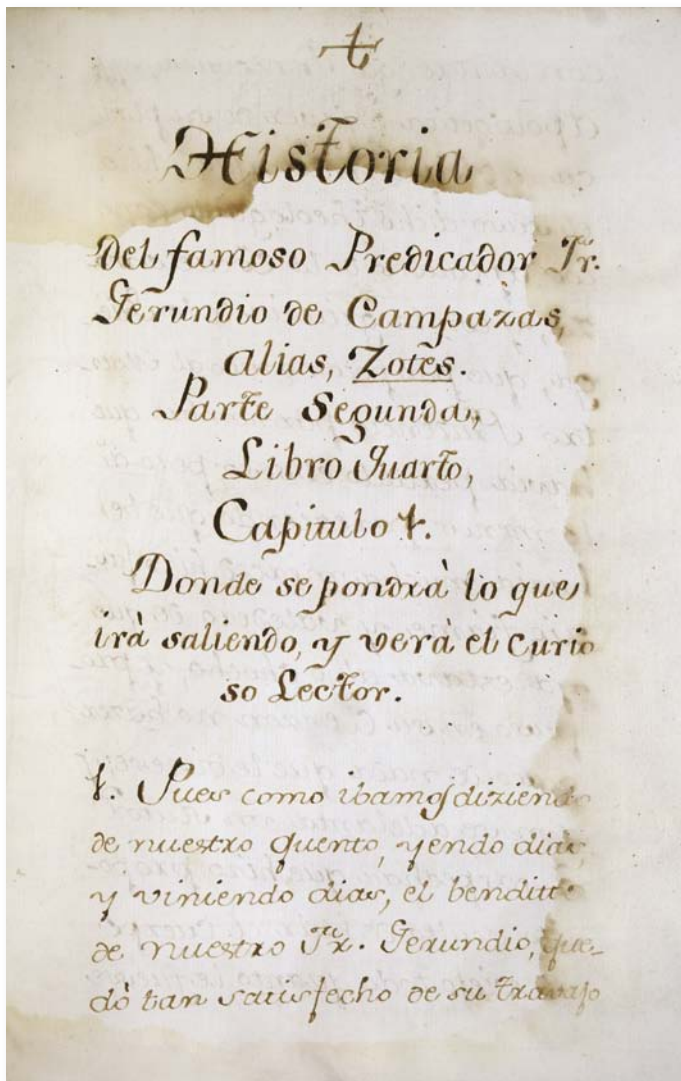 Historia
del famoso Predicador Fr.
Gerundio de Campazas,
alias, Zotes.
Parte Segunda,
Libro Quarto,
Capitulo 1.
Donde se pondrà lo que
irà saliendo, y verà el curio
so Lector.
1. Pues como ibamos diziendo
de nuestro quento, yendo dias,
y viniendo dias, el benditto
de nuestro Fr. Gerundio, que-
dò tan satisfecho de su travajo